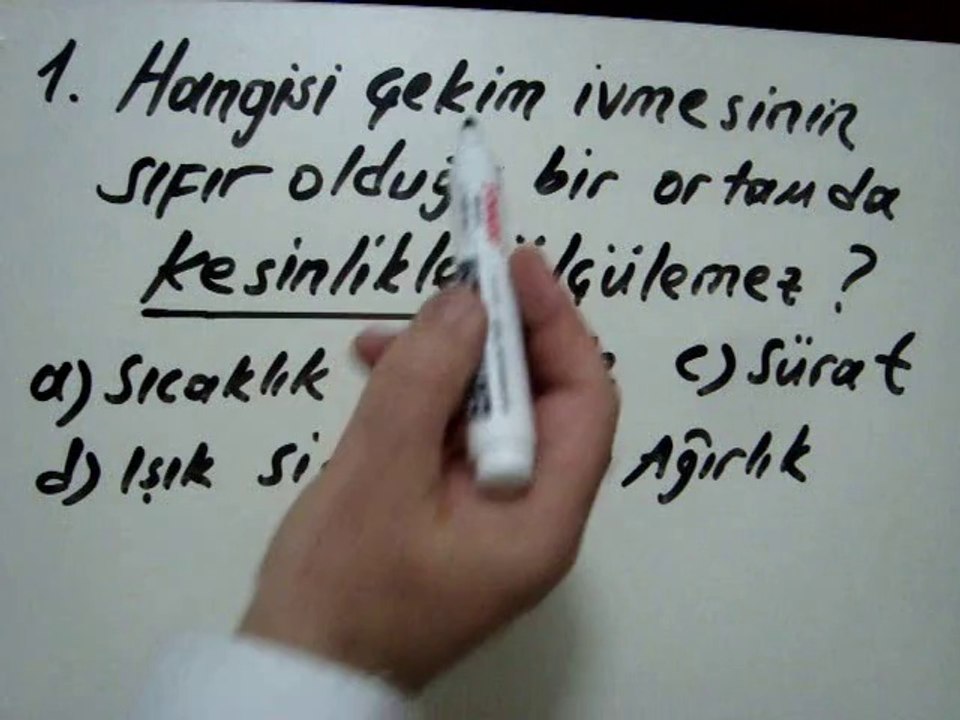 1. Hangisi çekim ivmesinin
sıfır olduğ bir ortamda
kesinlikle ölçülemez ?
a) Sıcaklık c) Sürat
d) Işık Ağırlık